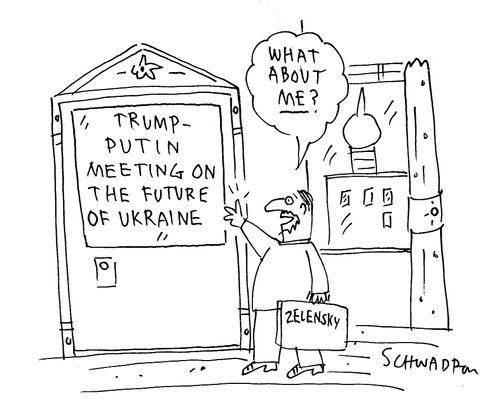 WHAT
ABOUT
ME?
" TRUMP-
PUTIN
MEETING ON
THE FUTURE
OF UKRAINE
"
ZELENSKY
SCHWADRON